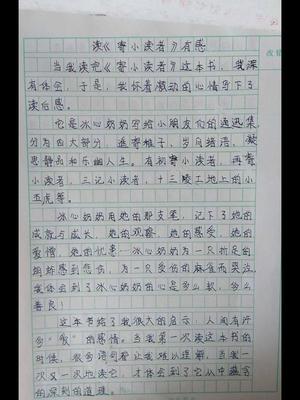 读《寄小读者》有感
当我读完《寄小读者》这本书，我深
有体会，于是，我怀着激动的心情写下了
读后感。
它是冰心奶奶写给小朋友们的通迅集
分为四大部分，遥寄稚子，岁月结语，凝
思静品和乐幽人生。有初寄小读者，再寄
小读者，三记小读者，十三陵工地上的小
五虎等。
冰心奶奶用她的那支笔，记下了她的
成就与成长，她的观察，她的感受，她的
爱憎，她的忧患…冰心奶奶为一只折足的
蝴蝶感到悲伤，为一只受伤的麻雀而哭泣，
我体会到了冰心奶奶的心是多么软，多么
善良！
这本书给了我很大的启示，人间有许
多“爱”的感情。当我第一次读这本书的
时候，很多词句看让我难以理解，当我一
次又一次地读它，才体会到了它从中蕴含
的深刻的道理。